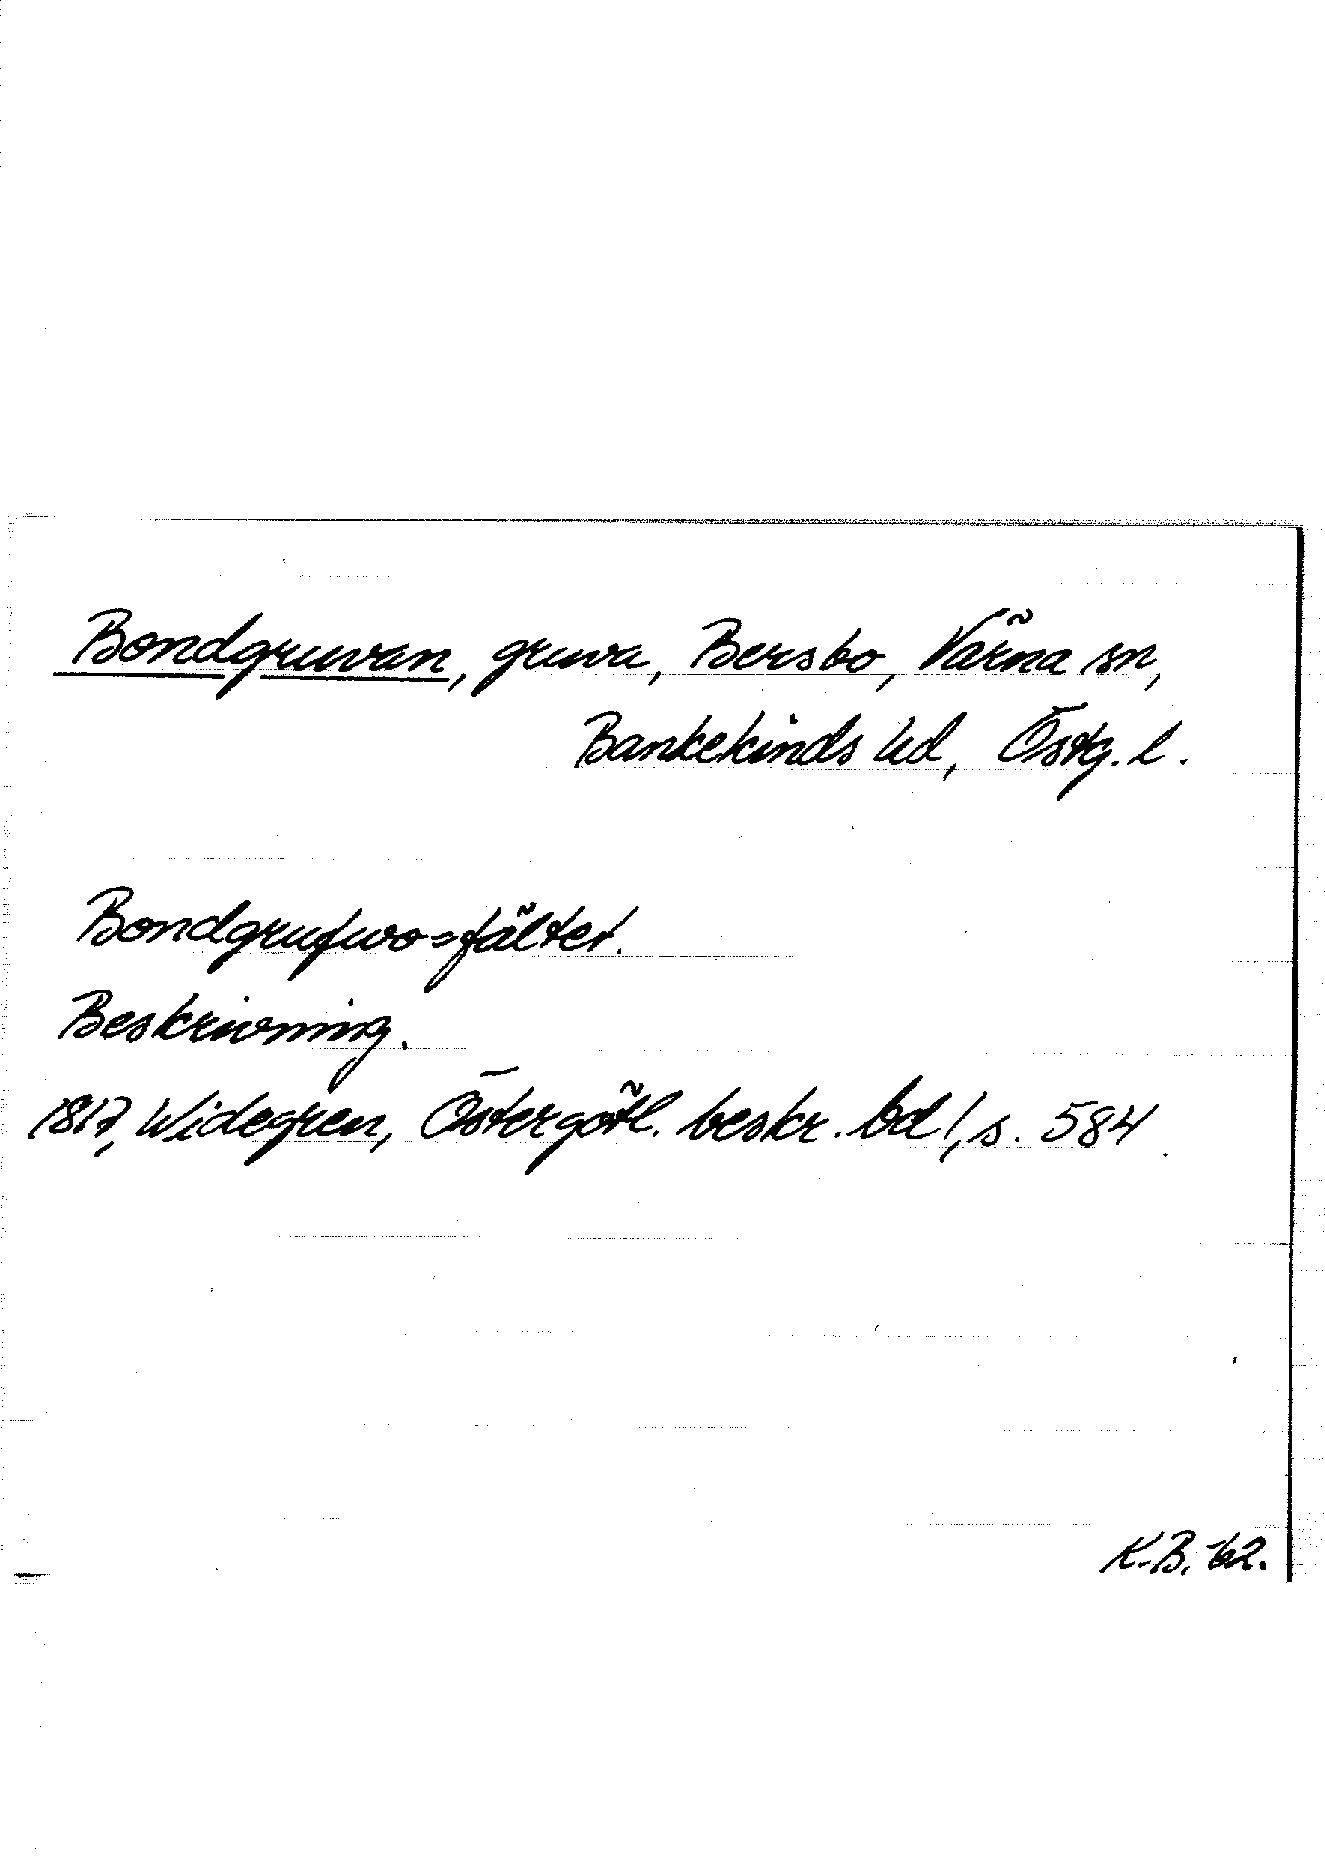 Bondgruvan, gruva, Bersbo, Värna sn,
Bankekinds hd, Östg. l.
Bondgrufwo=fältet.
Beskrivning.
1817, Widegren, Östergötl. beskr. bd 1, s. 584
K.B. 62.